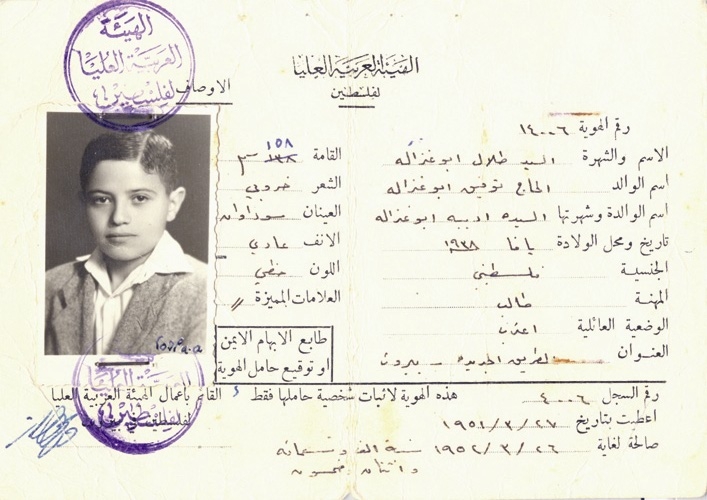 الهيئة
العربية العليا
لفلسطين
الهيئة العربية العليا
لفلسطين
رقم الهوية ١٤٠٠٦
الاسم والشهرة السيد طلال ابوغزاله
اسم الوالد الحاج توفيق ابوغزاله
اسم الوالدة وشهرتها السيده اديبه ابوغزاله
تاريخ ومحل الولادة يافا ١٩٣٨
الجنسية فلسطيني
المهنة طالب
الوضعية العائلية اعزب
العنوان الطريق الجديده - بيروت
الاوصاف
القامة ١٥٨ سم
الشعر خروبي
العينان سوداوان
الانف عادي
اللون حنطي
العلامات المميزة //
طابع الابهام الايمن
او توقيع حامل الهوية
رقم السجل ٤٠٠٦
هذه الهوية لاثبات شخصية حاملها فقط
القائم باعمال الهيئة العربية العليا
لفلسطين
اعطيت بتاريخ ١٩٥١/٣/٢٧
صالحة لغاية ١٩٥٢/٣/٢٦ سنة الف وتسعمائه
واثنان وخمسون